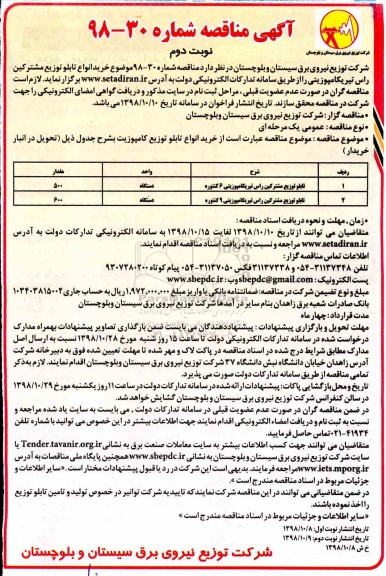 شرکت توزیع نیروی برق سیستان و بلوچستان
آگهی مناقصه شماره ۳۰-۹۸
نوبت دوم
شرکت توزیع نیروی برق سیستان و بلوچستان در نظر دارد مناقصه شماره ۳۰-۹۸ موضوع خرید انواع تابلو توزیع مشترکین
راس تیر یکامپوزیتی را از طریق سامانه تدارکات الکترونیکی دولت به آدرس www.setadiran.ir برگزار نماید. لازم است
مناقصه گران در صورت عدم عضویت قبلی، مراحل ثبت نام در سایت مذکور و دریافت گواهی امضای الکترونیکی را جهت
شرکت در مناقصه محقق سازند. تاریخ انتشار فراخوان در سامانه تاریخ ۱۳۹۸/۱۰/۱۰ می باشد.
• مناقصه گزار: شرکت توزیع نیروی برق سیستان وبلوچستان
• نوع مناقصه: عمومی یک مرحله ای
• موضوع مناقصه: موضوع مناقصه عبارت است از خرید انواع تابلو توزیع کامپوزیت بشرح جدول ذیل (تحویل در انبار
خریدار)
ردیف شرح واحد مقدار
۱ تابلو توزیع مشترکین راس تیر یکامپوزیتی ۶ کنتوره دستگاه ۵۰۰
۲ تابلو توزیع مشترکین راس تیر یکامپوزیتی ۹ کنتوره دستگاه ۶۰۰
• زمان، مهلت و نحوه دریافت اسناد مناقصه:
متقاضیان می توانند از تاریخ ۱۳۹۸/۱۰/۱۰ لغایت ۱۳۹۸/۱۰/۱۵ به سامانه الکترونیکی تدارکات دولت به آدرس
www.setadiran.ir مراجعه و نسبت به دریافت اسناد مناقصه اقدام نمایند.
اطلاعات تماس مناقصه گزار:
تلفن ۳۱۱۳۷۳۴۸-۰۵۴ و ۳۱۱۳۷۳۳۸ فکس ۳۱۱۳۷۰۵۰-۰۵۴ پیام کوتاه ۹۳۰۷۲۸۰۲۰۰
پست الکترونیک: sbepdc@gmail.com وب: www.sbepdc.ir
مبلغ و نوع تضمین شرکت در مناقصه: ضمانتنامه بانکی یا واریز مبلغ ۱.۹۷۲.۰۰۰.۰۰۰ ریال به حساب جاری ۰۱۰۳۴۰۳۸۱۵۰۰۲
بانک صادرات شعبه برق زاهدان بنام سایر در آمدها شرکت توزیع نیروی برق سیستان وبلوچستان
مدت قرارداد: چهار ماه
مهلت تحویل و بارگزاری پیشنهادات: پیشنهاددهندگان می بایست ضمن بارگذاری تصاویر پیشنهادات بهمراه مدارک
درخواست شده در سامانه تدارکات الکترونیکی دولت تا ساعت ۱۵ روز شنبه مورخ ۱۳۹۸/۱۰/۲۸ نسبت به ارسال اصل
مدارک مطابق شرایط درج شده در اسناد مناقصه در پاکت لاک و مهر شده تا مهلت تعیین شده فوق به دبیرخانه شرکت
آدرس زاهدان خیابان دانشگاه نبش دانشگاه ۳۷ شرکت توزیع نیروی برق سیستان وبلوچستان اقدام نمایند. لازم به ذکر
تمامی مناقصه از طریق سامانه تدارکات دولت صورت می پذیرد.
تاریخ و محل بازگشایی پاکات: پیشنهادات ارائه شده در سامانه تدارکات دولت در ساعت ۱۱ روز یکشنبه مورخ ۱۳۹۸/۱۰/۲۹
در سالن کنفرانس شرکت توزیع نیروی برق سیستان و بلوچستان گشایش خواهد شد.
در ضمن مناقصه گران در صورت عدم عضویت قبلی در سامانه تدارکات دولت، می بایست به سایت یاد شده مراجعه و
نسبت به ثبت نام و دریافت امضاء الکترونیکی اقدام نمایند جهت اطلاعات بیشتر در این خصوص می توانید با شماره تلفن
۴۱۹۳۴-۰۲۱ تماس حاصل فرمایید.
متقاضیان می توانند جهت کسب اطلاعات بیشتر به سایت معاملات صنعت برق به نشانی Tender.tavanir.org.ir یا
سایت شرکت توزیع نیروی برق سیستان وبلوچستان به نشانی www.sbepdc.ir و همچنین پایگاه ملی مناقصات به آدرس
www.iets.mporg.ir مراجعه فرمایند. بدیهی است این شرکت در رد یا قبول پیشنهادات مختار است. « سایر اطلاعات و
جزئیات مربوط در اسناد مناقصه مندرج است ».
در ضمن متقاضیانی می توانند در این مناقصه شرکت نمایند که تاییدیه شرکت توانیر در خصوص تولید و تامین تابلو توزیع
را اخذ نموده باشند.
« سایر اطلاعات و جزئیات مربوط در اسناد مناقصه مندرج است »
تاریخ انتشار نوبت اول: ۱۳۹۸/۱۰/۸
تاریخ انتشار نوبت دوم: ۱۳۹۸/۱۰/۹
خ ش ۱۳۹۸/۱۰/۸
شرکت توزیع نیروی برق سیستان و بلوچستان